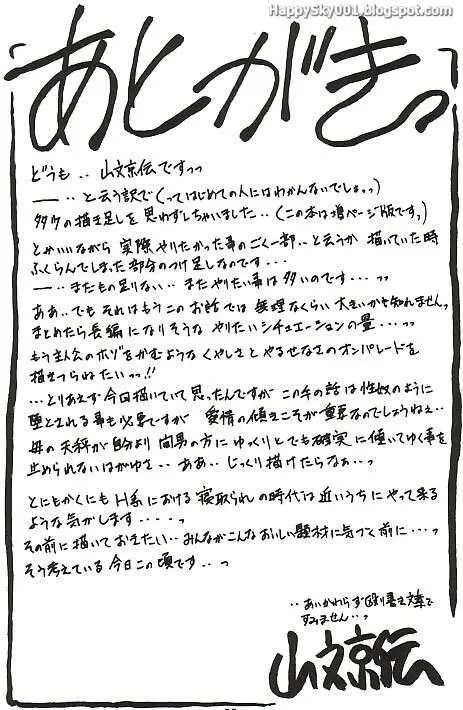 HappySky001.blogspot.com
あとがきっ
どうも‥山文京伝ですっっ
―‥と云う訳で(ってはじめての人にはわかんないでしょっっ)
多少の描き足しを思わずしちゃいました‥(この本は増ページ版ですっ)
とかいいながら 実際やりたかった事のごく一部‥と云うか 描いていた時
ふくらんでしまった部分のつけ足しなのです・・・
―‥まだもの足りない‥まだやりたい事は多いのです・・・っっ
ああ‥でも それはもうこのお話では 無理なくらい 大きいかも知れませんっ
まとめたら長編になりそうな やりたいシチュエーションの量・・・・っっ
もう主人公のホゾをかむような くやしさと やるせなさのオンパレードを
描きつらねたいっっ!!
・・・とりあえず今回描いていて思ったんですが この手の話は性奴のように
堕とされる事も必要ですが 愛情の傾きこそが重要なのでしょうねぇ‥
母の天秤が自分より 間男の方に ゆっくりとでも確実に傾いてゆく事を
止められないはがゆさ‥ああ‥じっくり描けたらなぁ・・っ
とにもかくにも H系における 寝取られの時代は近いうちに やって来る
ような気がします・・・・っ
その前に描いておきたい‥みんながこんなおいしい題材に気づく前に・・・っ
そう考えている今日この頃です‥っ
‥あいかわらず殴り書き文章で
すみません‥っ
山文京伝